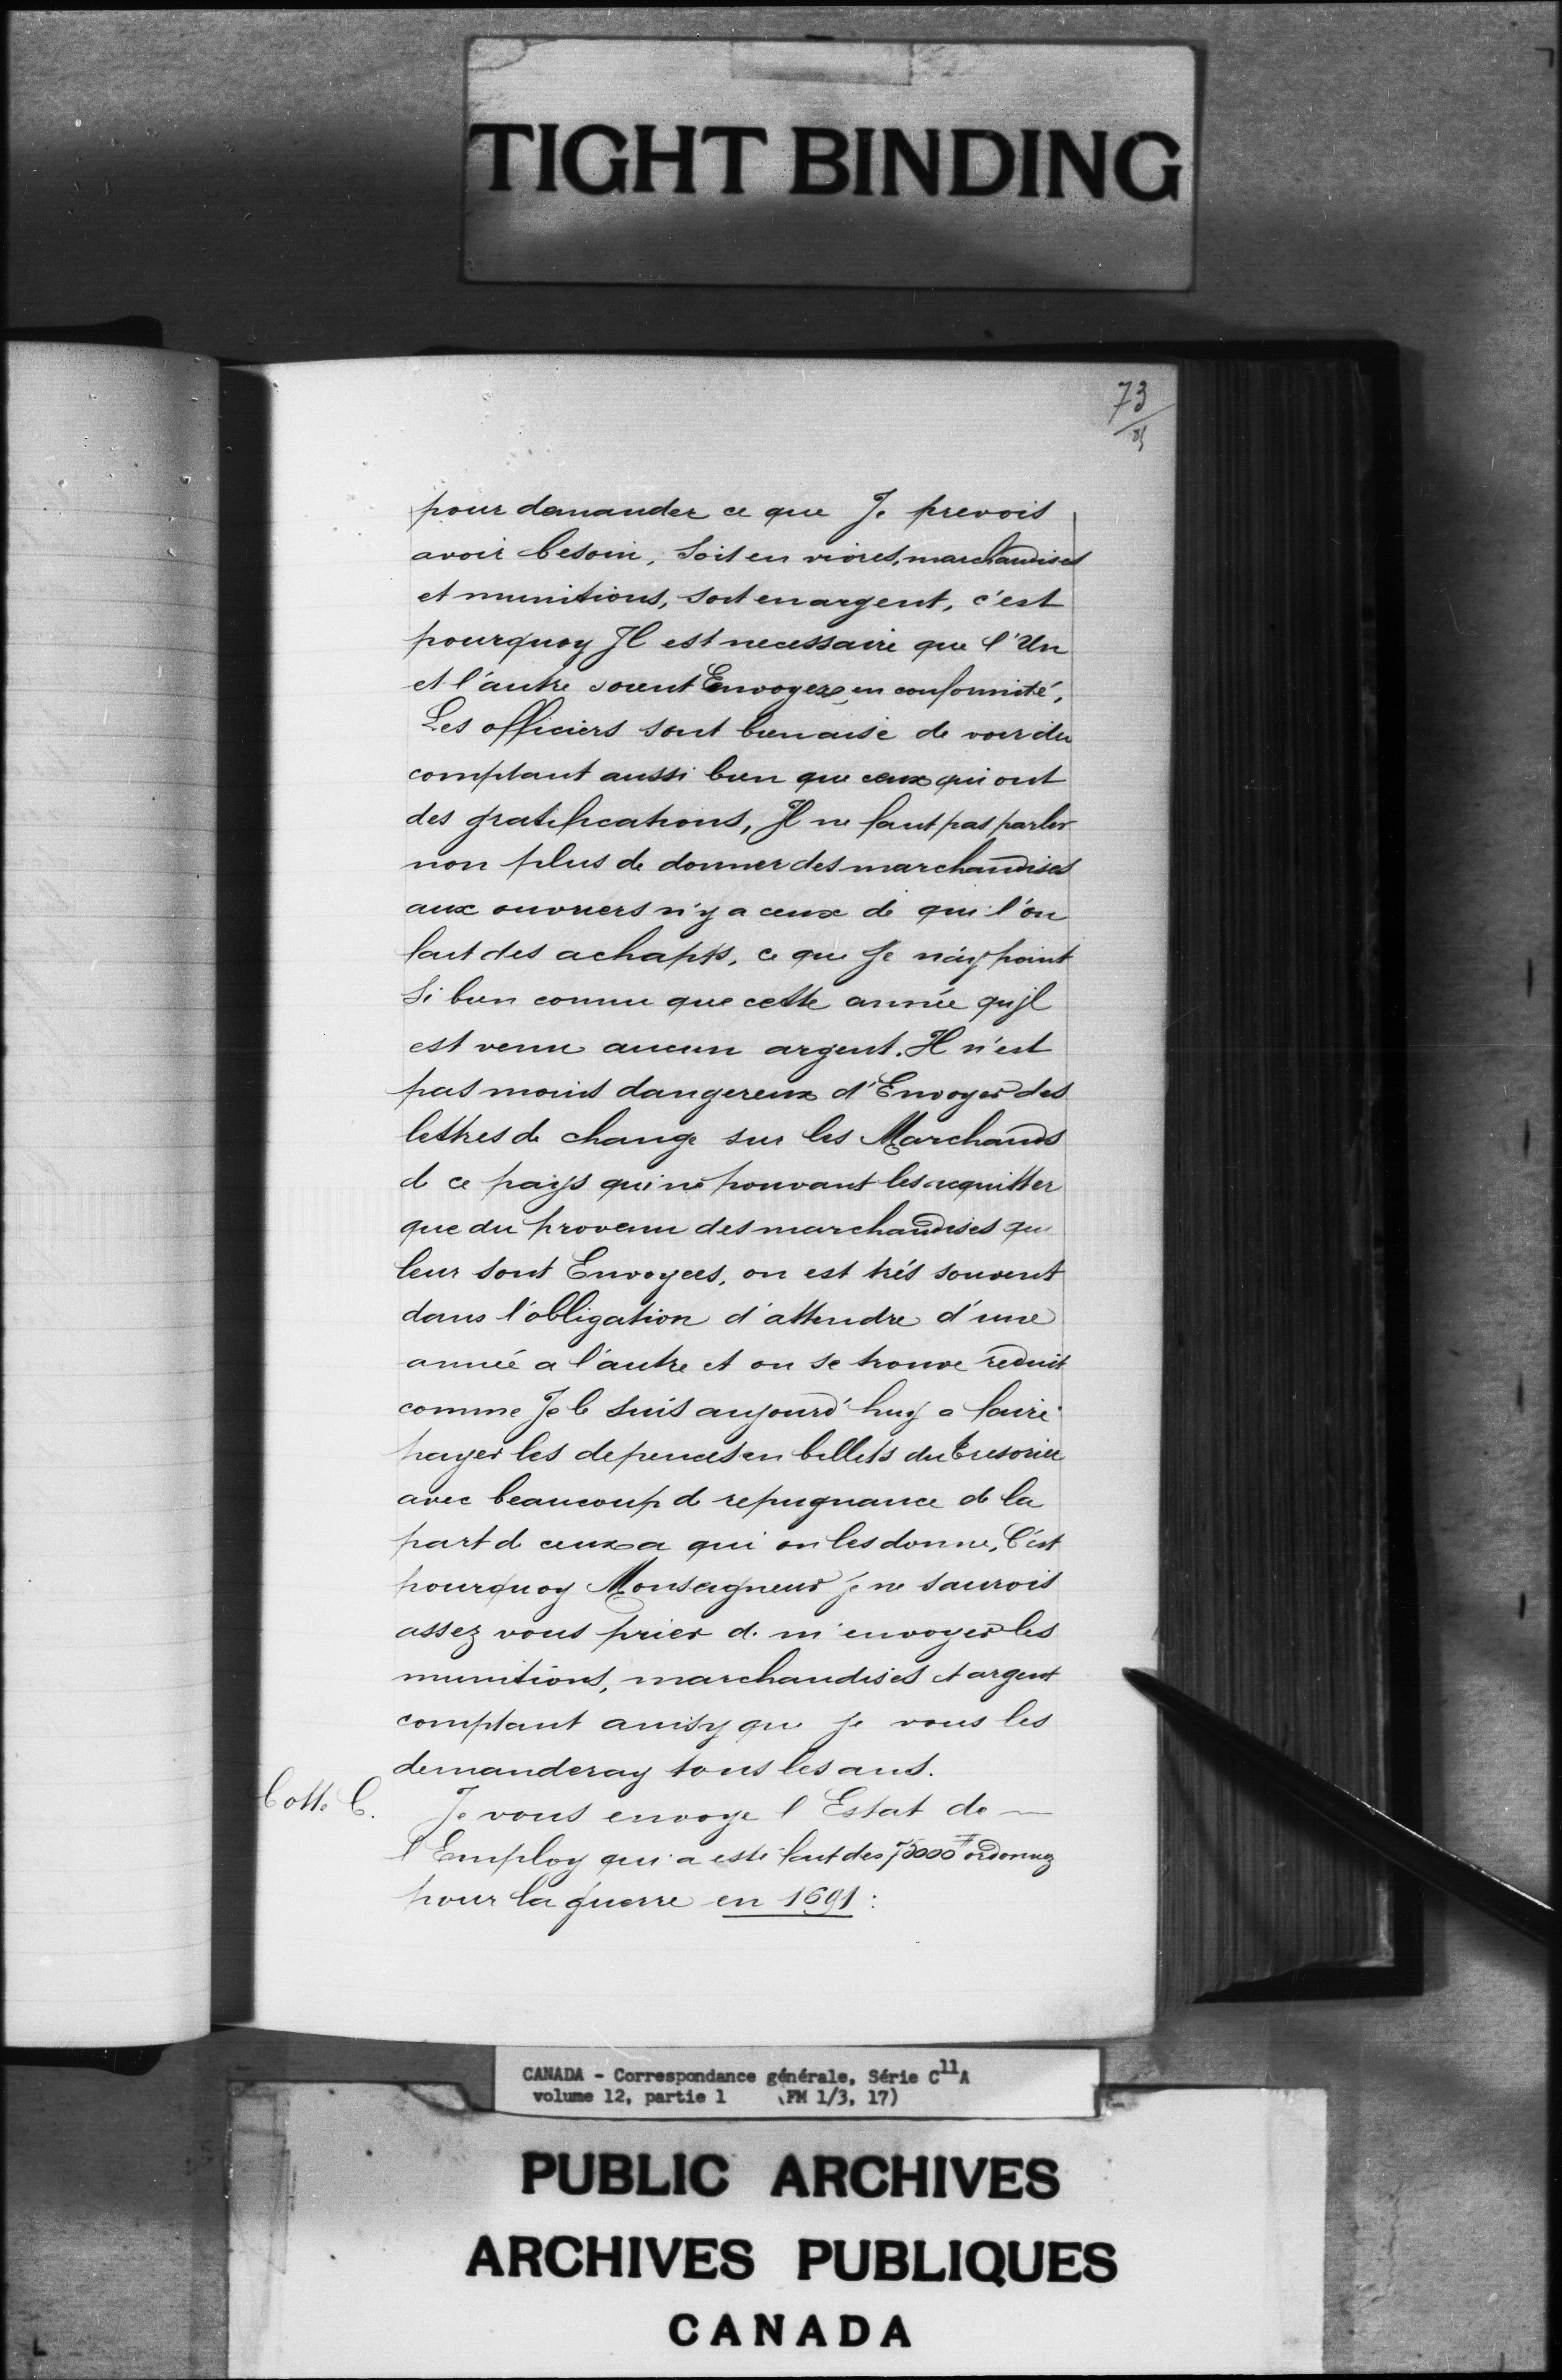 TIGHT BINDING
73
pour demander ce que Je prevois
avoir besoin, Soit en vivres, marchandises
et munitions, soit en argent, c'est
pourquoy Jl est necessaire que l'Un
et l'autre soient Envoyez en conformité,
Les officiers sont bien aise de voir du
comptant aussi bien que ceux qui ont
des gratifications, Jl ne faut pas parler
non plus de donner des marchandises
aux ouvriers n'y a ceux de qui l'on
fait des achapts, ce que Je n'ay point
Si bien connu que cette année qu'jl
est venu aucun argent. Il n'est
pas moins dangereux d'Envoyer des
lettres de change sur les Marchands
de ce pays qui ne pouvant les acquitter
que du provenu des marchandises qui
leur sont Envoyees, on est trés souvent
dans l'obligation d'attendre d'une
année a l'autre et on se trouve reduit
comme Je le suis aujourd'huy a faire
payer les depences en billets du tresorier
avec beaucoup de repugnance de la
part de ceux a qui on les donne, C'est
pourquoy Monseigneur je ne saurois
assez vous prier de m'envoyer les
munitions, marchandises et argent
comptant ainsy que je vous les
demanderay tous les ans.
Cotte C. Je vous envoye l'Estat de
l'Employ qui a esté fait des 75000# ordonnez
pour la guerre en 1691 :
CANADA - Correspondance générale, Série C11A
volume 12, partie 1 (FM 1/3, 17)
PUBLIC ARCHIVES
ARCHIVES PUBLIQUES
CANADA